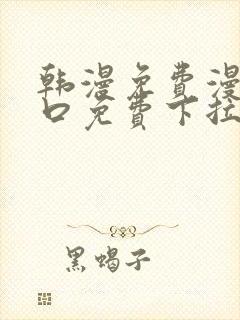 韩漫免费漫
口免费下拉
黑蝎子